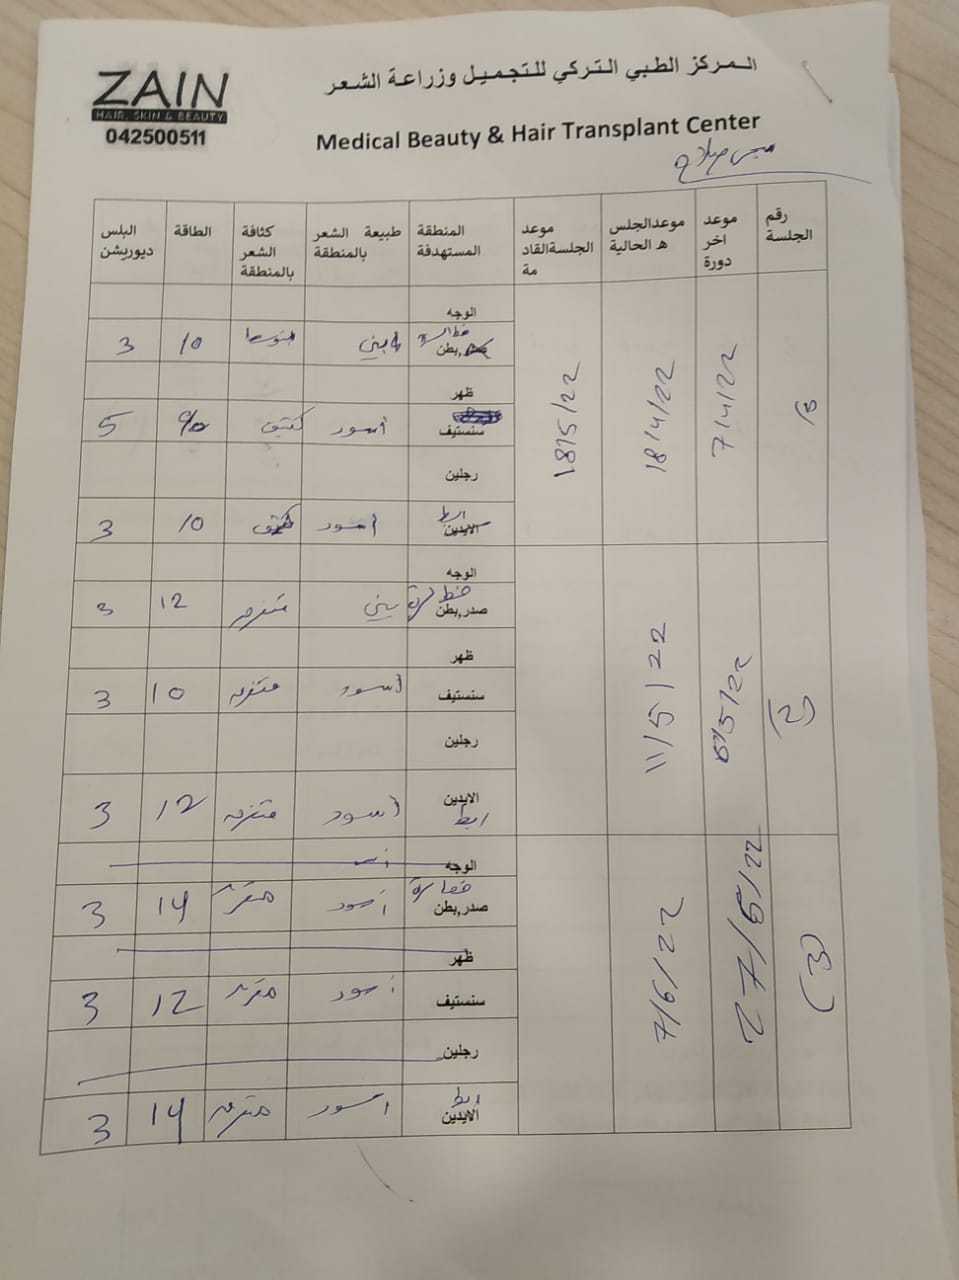 ZAIN
HAIR, SKIN & BEAUTY
042500511
المركز الطبي التركي للتجميل وزراعة الشعر
Medical Beauty & Hair Transplant Center
رقم الجلسة
موعد اخر دورة
موعدالجلس ه الحالية
موعد الجلسةالقاد مة
المنطقة المستهدفة
طبيعة الشعر بالمنطقة
كثافة الشعر بالمنطقة
الطاقة
البلس ديوريشن
7/4/22 18/4/22 18/5/22
الوجه
بطن 10 3
ظهر
سنستيف أسود 5
رجلين
ابط الايدين أسود 10 3
(2) 11/5/22
الوجه
صدر,بطن بني 12 3
ظهر
سنستيف أسود 10 3
رجلين
الايدين ابط أسود 12 3
(3) 27/5/22 7/6/22
الوجه
صدر,بطن أسود 14 3
ظهر
سنستيف أسود 12 3
رجلين
ابط الايدين أسود 14 3